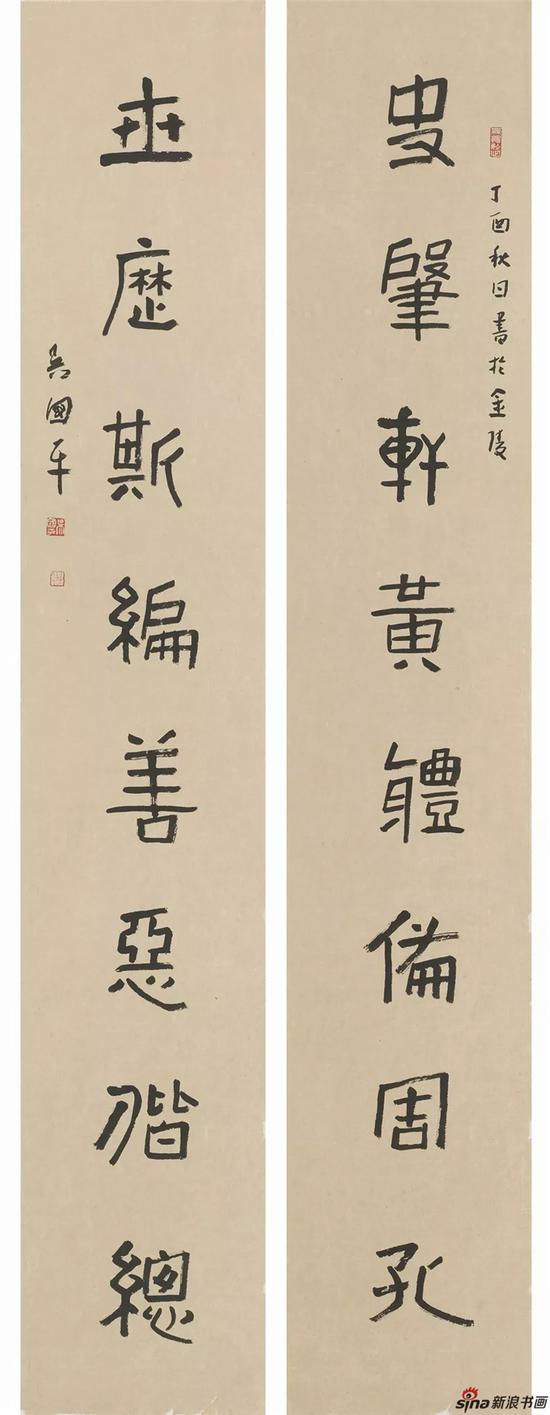 丁酉秋日書於金陵
史肇軒黃軆備周孔
世歷斯編善惡偕總
吳國平
sina新浪书画